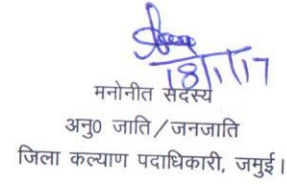 18/1/17
मनोनीत सदस्य
अनु0 जाति/जनजाति
जिला कल्याण पदाधिकारी, जमुई।